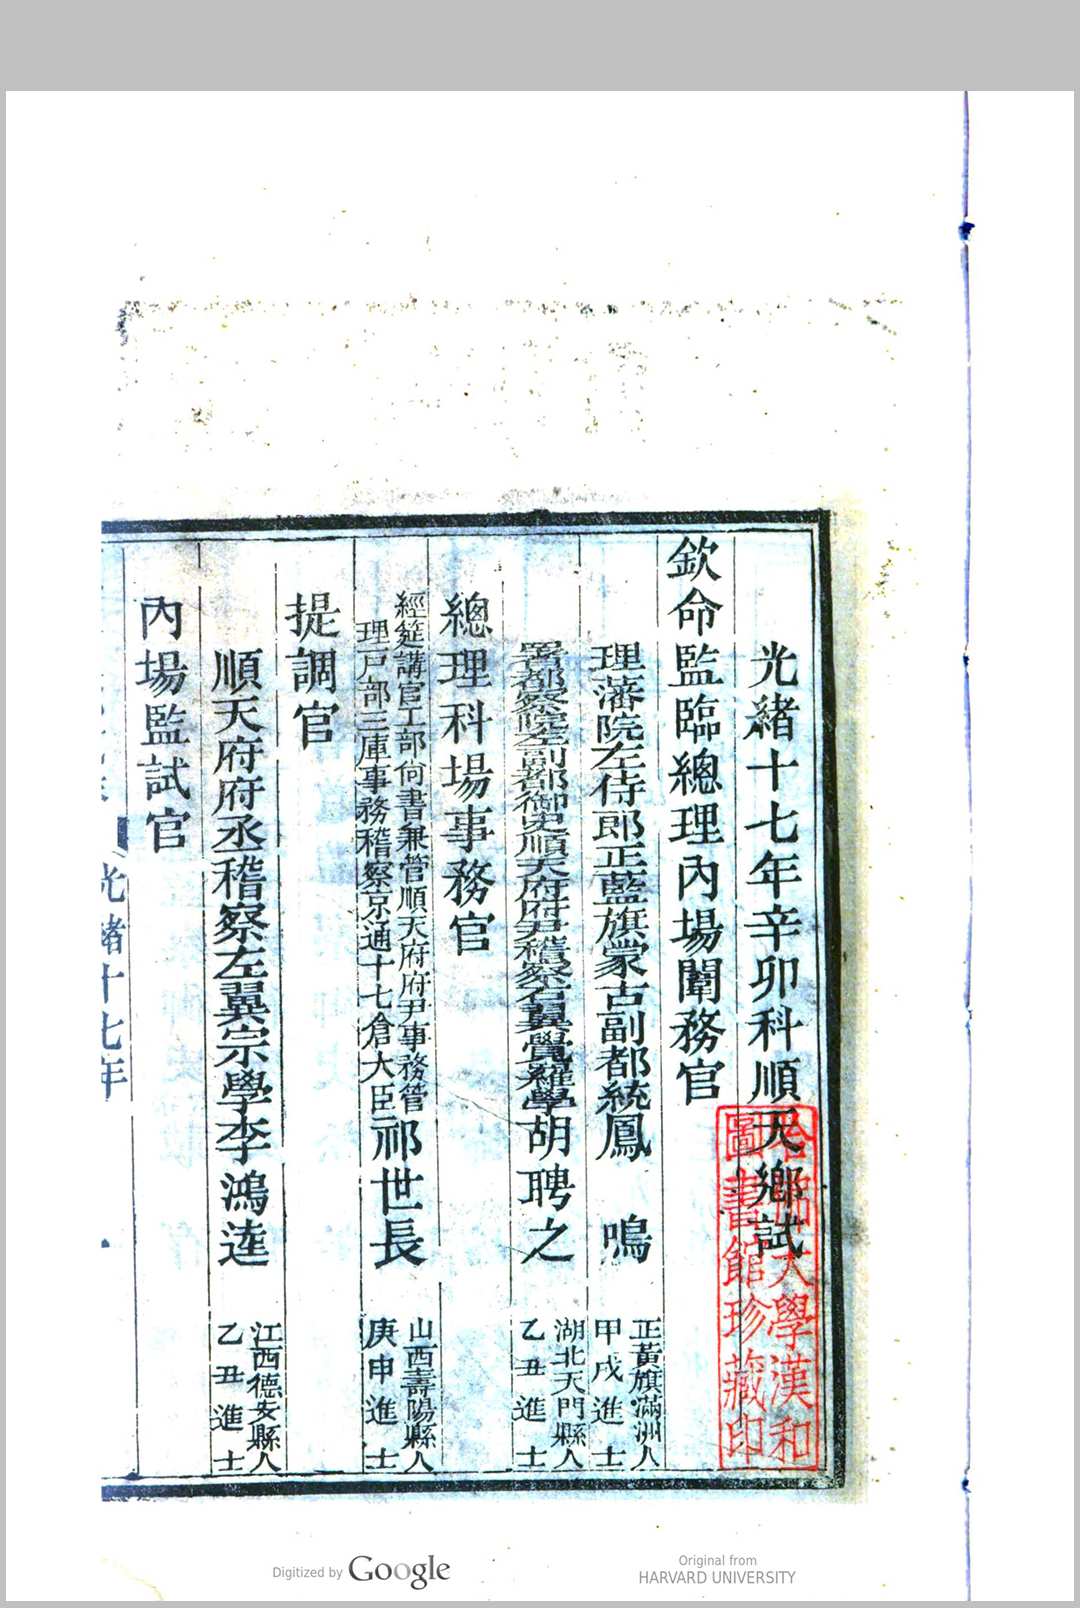 光緒十七年辛卯科順天鄉試
欽命監臨總理內場闈務官
理藩院左侍郎正藍旗蒙古副都統鳳　鳴
正黃旗滿洲人
甲戌進士
署都察院左副都御史順天府府尹稽察右翼覺羅學胡聘之
湖北天門縣人
乙丑進士
總理科場事務官
經筵講官工部尚書兼管順天府府尹事務管
理戶部三庫事務稽察京通十七倉大臣祁世長
山西壽陽縣人
庚申進士
提調官
順天府府丞稽察左翼宗學李鴻逵
江西德安縣人
乙丑進士
內場監試官
光緒十七年
哈佛大學漢和
圖書館珍藏印
Digitized by Google
Original from
HARVARD UNIVERSITY